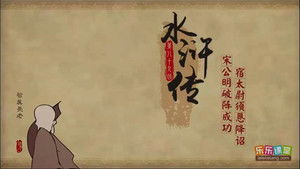 水浒传
宿太尉颁恩降诏
宋公明破阵成功
乐乐课堂